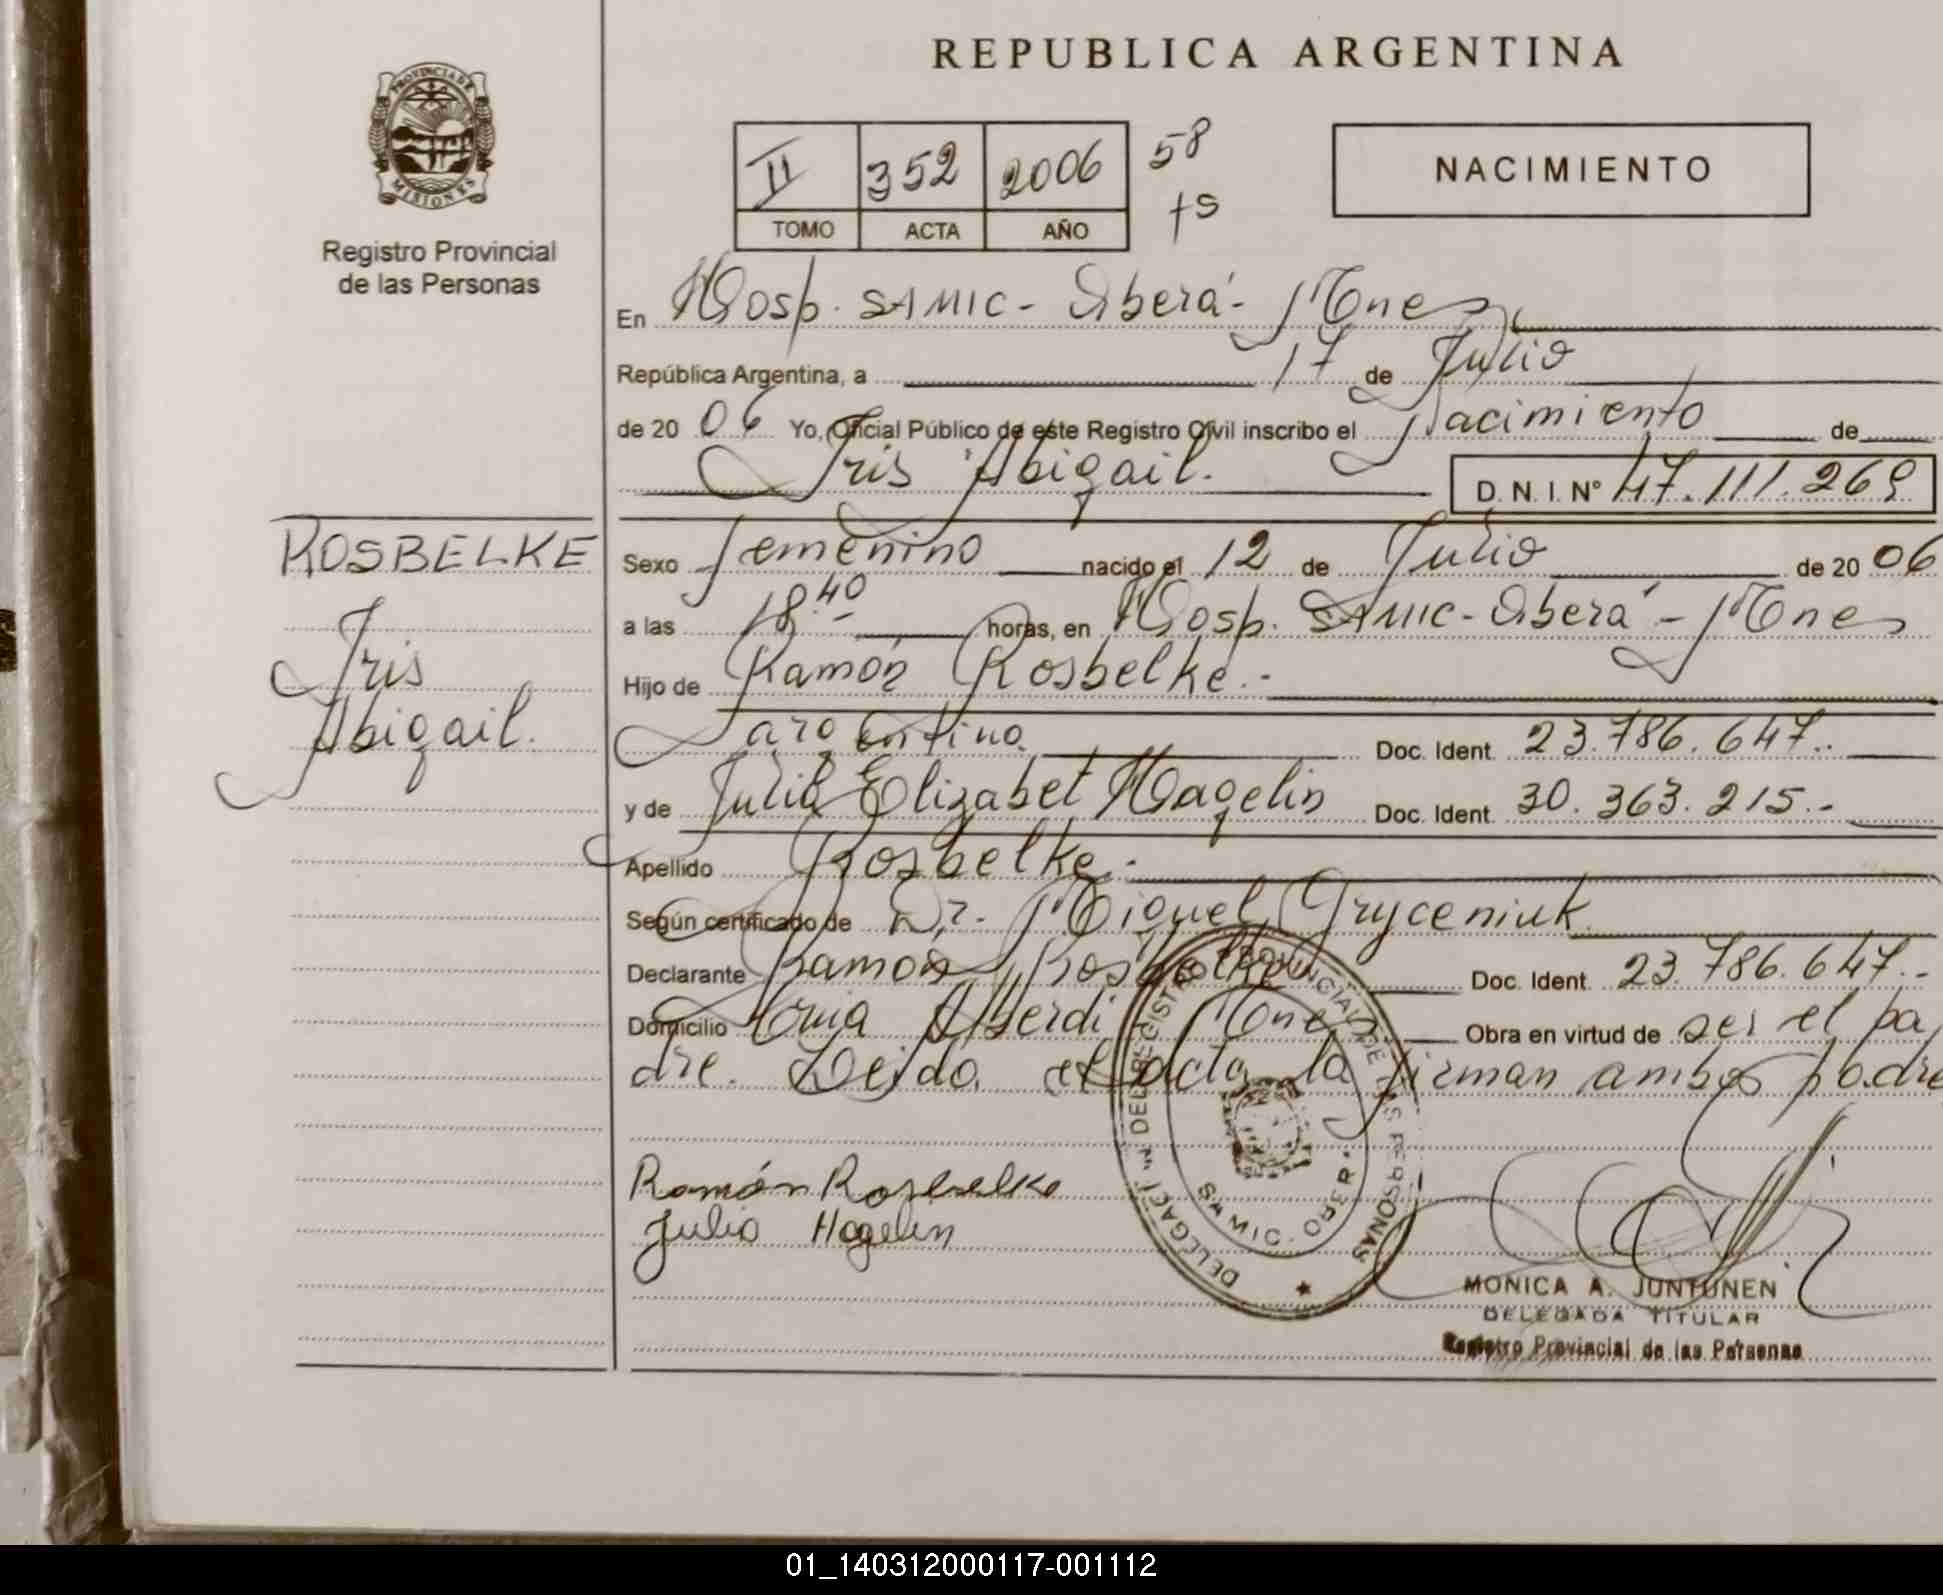 REPUBLICA ARGENTINA
PROVINCIA DE
MISIONES
Registro Provincial
de las Personas
II 352 2006 58
TOMO ACTA AÑO fs
NACIMIENTO
En Hosp. SAMIC - Oberá - Mnes
República Argentina, a 17 de Julio
de 2006 Yo, Oficial Público de este Registro Civil inscribo el Nacimiento de
Iris Abigail. D.N.I. Nº 47.111.269
ROSBELKE
Iris
Abigail.
Sexo femenino nacido el 12 de Julio de 2006
a las 18.40 horas, en Hosp. SAMIC - Oberá - Mnes
Hijo de Ramón Rosbelke.-
argentino. Doc. Ident. 23.786.647..
y de Julia Elizabet Hagelin Doc. Ident. 30.363.215.-
Apellido Rosbelke.-
Según certificado de Dr. Miguel Gryceniuk
Declarante Ramón Rosbelke Doc. Ident. 23.786.647.-
Domicilio Alberdi Mnes Obra en virtud de ser el pa
dre. Leída el acta la firman ambos padre
Ramón Rosbelke
Julia Hagelin
DELEGACI DEL REGISTRO PROVINCIAL DE LAS PERSONAS
SAMIC. OBER
MONICA A. JUNTUNEN
DELEGADA TITULAR
Registro Provincial de las Personas
01_140312000117-001112